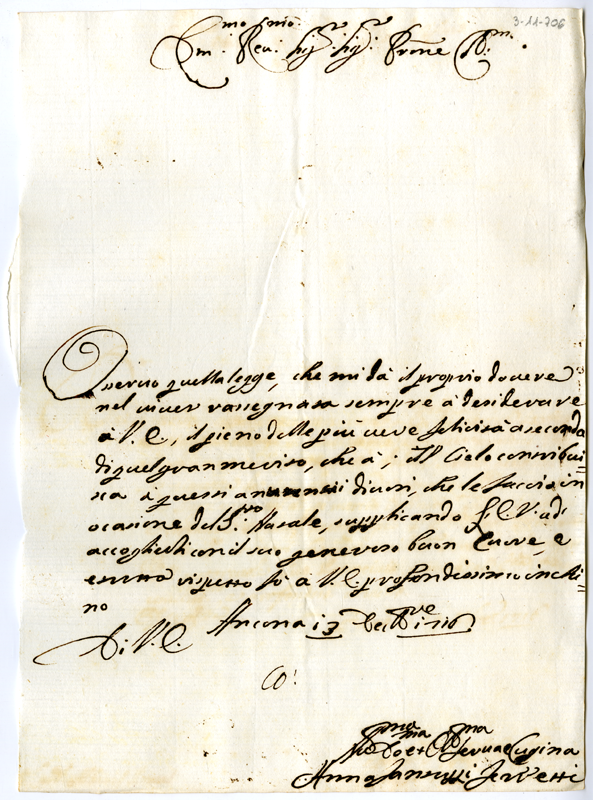 3-11-706
Em.mo Rev.mo Sig.r Sig.r Prone
Osservo quella legge, che mi dà il proprio dovere
nel viver rassegnata sempre à desiderare
à V. E., il pieno delle più vere felicità à seconda
di quel gran merito, che à; il Cielo contribui=
sca à questi di cuori, che le faccio in
ocasione del S.mo Natale, supplicando l'E. V. à di
accoglierli con il suo generoso buon Cuore, e
rispetto fò à V. E. profondissimo inchi=
no
Di V. E. Ancona 13 Xbre
Serva e Cugina
Anna